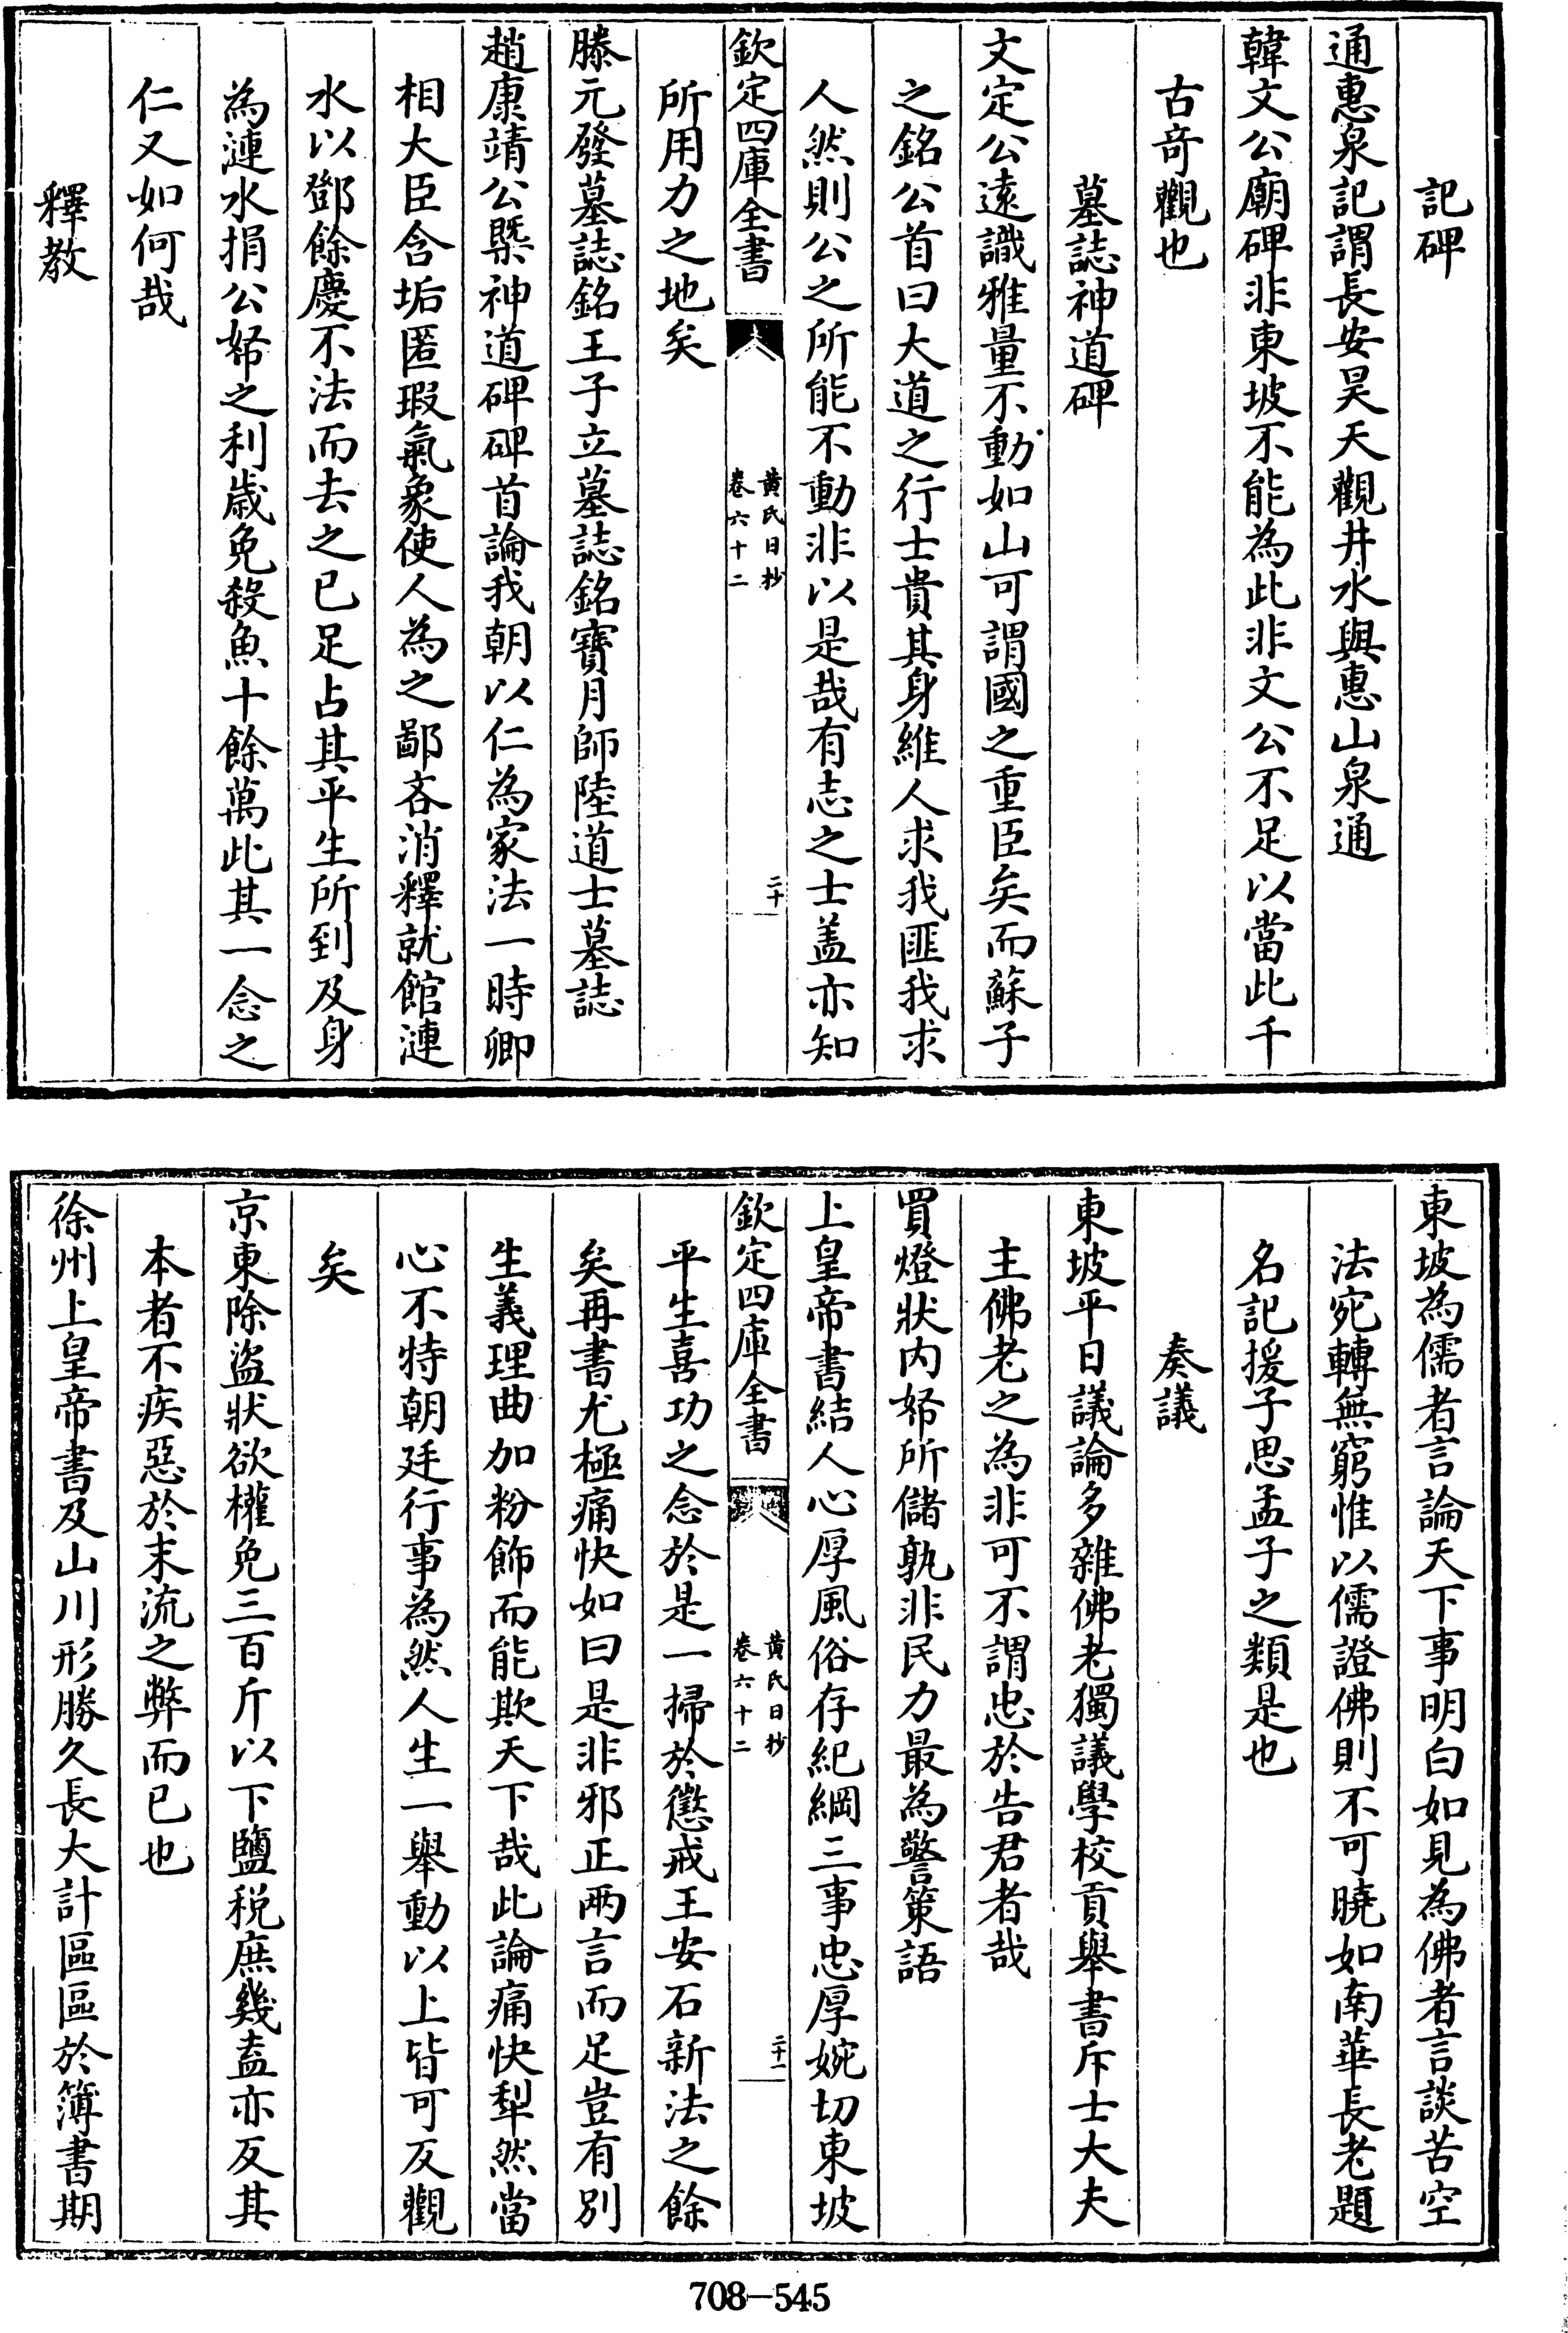 記碑
通惠泉記謂長安昊天觀井水與惠山泉通
韓文公廟碑非東坡不能為此非文公不足以當此千
古竒觀也
墓誌神道碑
文定公遠識雅量不動如山可謂國之重臣矣而蘇子
之銘公首曰大道之行士貴其身維人求我匪我求
人然則公之所能不動非以是哉有志之士盖亦知
欽定四庫全書
黄氏日抄
卷六十二
二十
所用力之地矣
滕元發墓誌銘王子立墓誌銘寶月師陸道士墓誌
趙康靖公槩神道碑碑首論我朝以仁為家法一時卿
相大臣含垢匿瑕氣象使人為之鄙吝消釋就館漣
水以鄧餘慶不法而去之已足占其平生所到及身
為漣水捐公帑之利歲免殺魚十餘萬此其一念之
仁又如何哉
釋教
東坡為儒者言論天下事明白如見為佛者言談苦空
法宛轉無窮惟以儒證佛則不可曉如南華長老題
名記援子思孟子之類是也
奏議
東坡平日議論多雜佛老獨議學校貢舉書斥士大夫
主佛老之為非可不謂忠於告君者哉
買燈狀内帑所儲孰非民力最為警策語
上皇帝書結人心厚風俗存紀綱三事忠厚婉切東坡
欽定四庫全書
黄氏日抄
卷六十二
二十一
平生喜功之念於是一掃於懲戒王安石新法之餘
矣再書尤極痛快如曰是非邪正兩言而足豈有別
生義理曲加粉飾而能欺天下哉此論痛快犁然當
心不特朝廷行事為然人生一舉動以上皆可反觀
矣
京東除盜狀欲權免三百斤以下鹽税庶幾盍亦反其
本者不疾惡於末流之弊而已也
徐州上皇帝書及山川形勝久長大計區區於簿書期
708-545